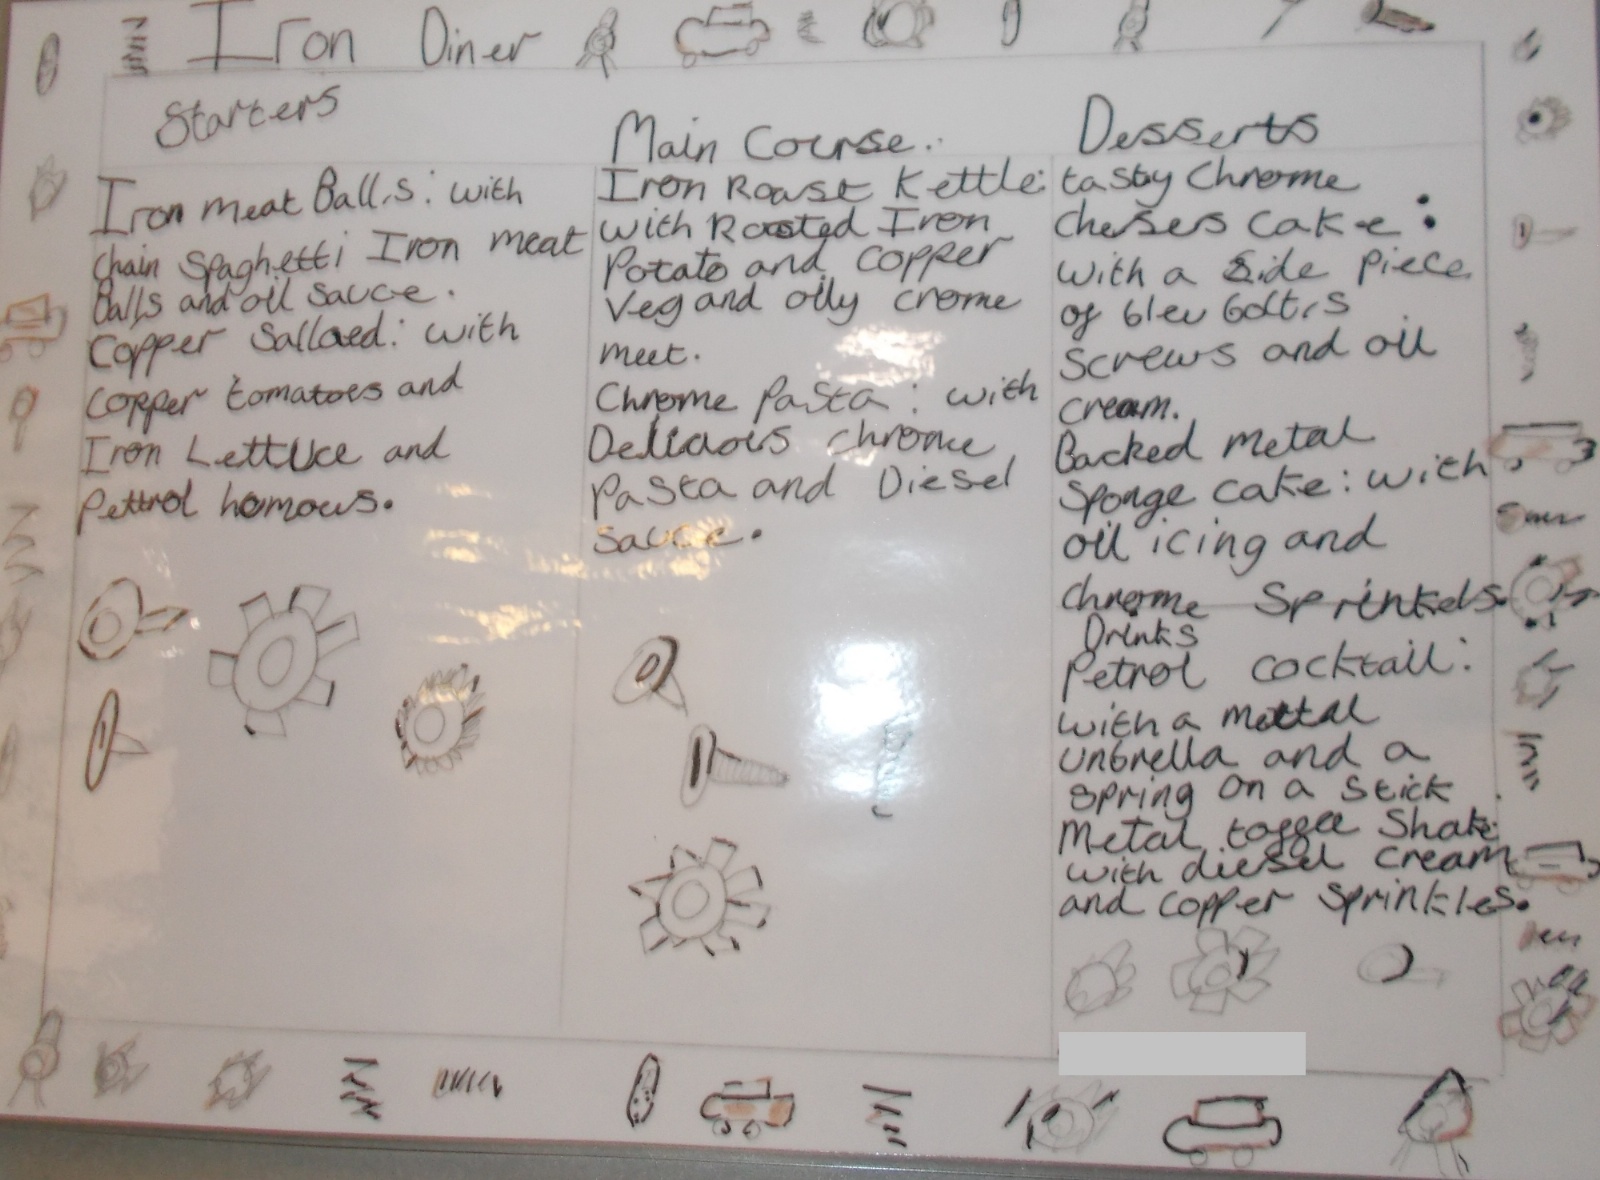 Iron Diner
Starters
Iron meat Balls: with
chain Spaghetti Iron meat
Balls and oil sauce.
Copper Sallaed: with
copper tomatoes and
Iron Lettuce and
Pettrol homous.
Main Course.
Iron Roast Kettle:
with Roasted Iron
Potato and copper
Veg and oily crome
meet.
Chrome Pasta: with
Delicaois chrome
Pasta and Diesel
sauce.
Desserts
tasty Chrome
cheses cake:
with a side piece
of bleu bolts
screws and oil
cream.
Backed metal
sponge cake: with
oil icing and
chrome Sprinkels.
Drinks
Petrol cocktail:
with a mettal
unbrella and a
spring on a stick
Metal toffee Shake
with diesel cream
and copper sprinkles.